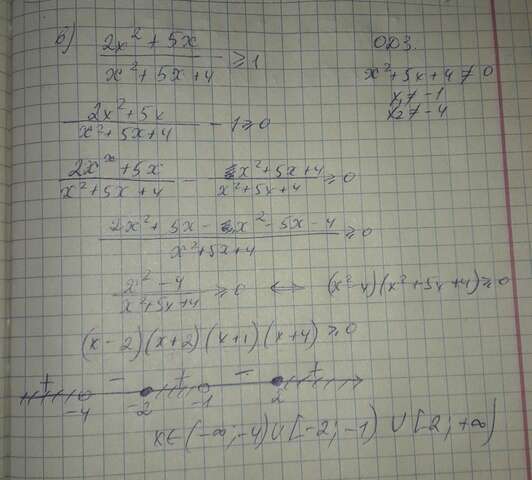 б) (2x² + 5x)/(x² + 5x + 4) ≥ 1
ОДЗ.
x² + 5x + 4 ≠ 0
x₁ ≠ -1
x₂ ≠ -4
(2x² + 5x)/(x² + 5x + 4) - 1 ≥ 0
(2x² + 5x)/(x² + 5x + 4) - (x² + 5x + 4)/(x² + 5x + 4) ≥ 0
(2x² + 5x - x² - 5x - 4)/(x² + 5x + 4) ≥ 0
(x² - 4)/(x² + 5x + 4) ≥ 0 ⟺ (x² - 4)(x² + 5x + 4) ≥ 0
(x - 2)(x + 2)(x + 1)(x + 4) ≥ 0
+ - + - +
-4 -2 -1 2
x ∈ (-∞; -4) ∪ [-2; -1) ∪ [2; +∞)